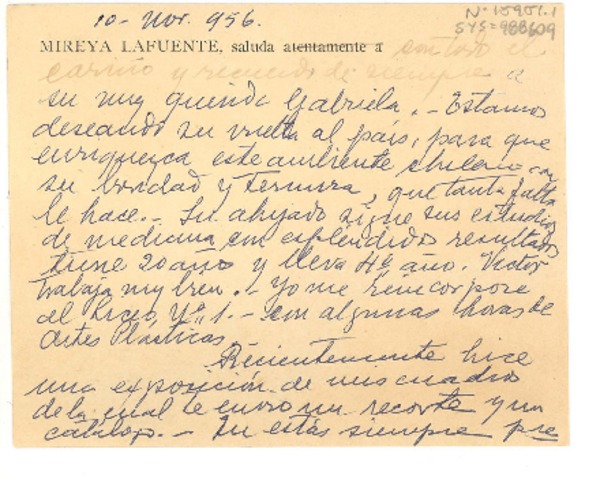 10-Nov. 956.
Nº 15901.1
SYS=988609
MIREYA LAFUENTE, saluda atentamente a con todo el
cariño y recuerdo de siempre a
su muy querida Gabriela.- Estamos
deseando su vuelta al país, para que
enriquezca este ambiente chileno con
su bondad y ternura, que tanta falta
le hace.- Su ahijado sigue sus estudios
de medicina con espléndidos resultados
tiene 20 años y lleva 4º año. Victor
trabaja muy bien.- Yo me reincorporé
al Liceo Nº 1.- con algunas horas de
Artes Plásticas.
Recientemente hice
una exposición de mis cuadros
de la cual le envio un recorte y un
catálogo.- Tu estás siempre pre